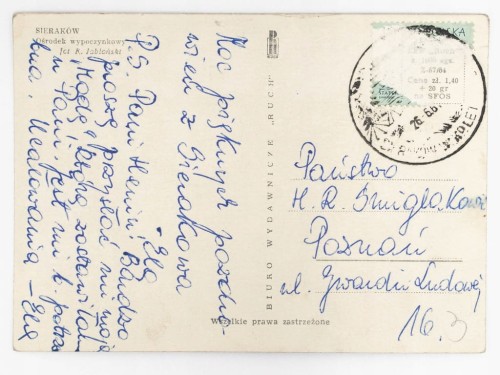 SIERAKÓW
Ośrodek wypoczynkowy
fot. K. Jabłoński
Moc pięknych pozdro-
wień z Sierakowa
Ela
P.S. Pani Heniu! Bardzo
proszę przysłać mi moją
którą zostawiłam
u Pani, jest mi b. potrz
bna. Ucałowania – Ela
BIURO WYDAWNICZE „RUCH”
Wszelkie prawa zastrzeżone
Cena zł. 1,40
+ 20 gr
na SFOS
Państwo
H. R. Śmiglak
Poznań
ul. Gwardii Ludowej
16.